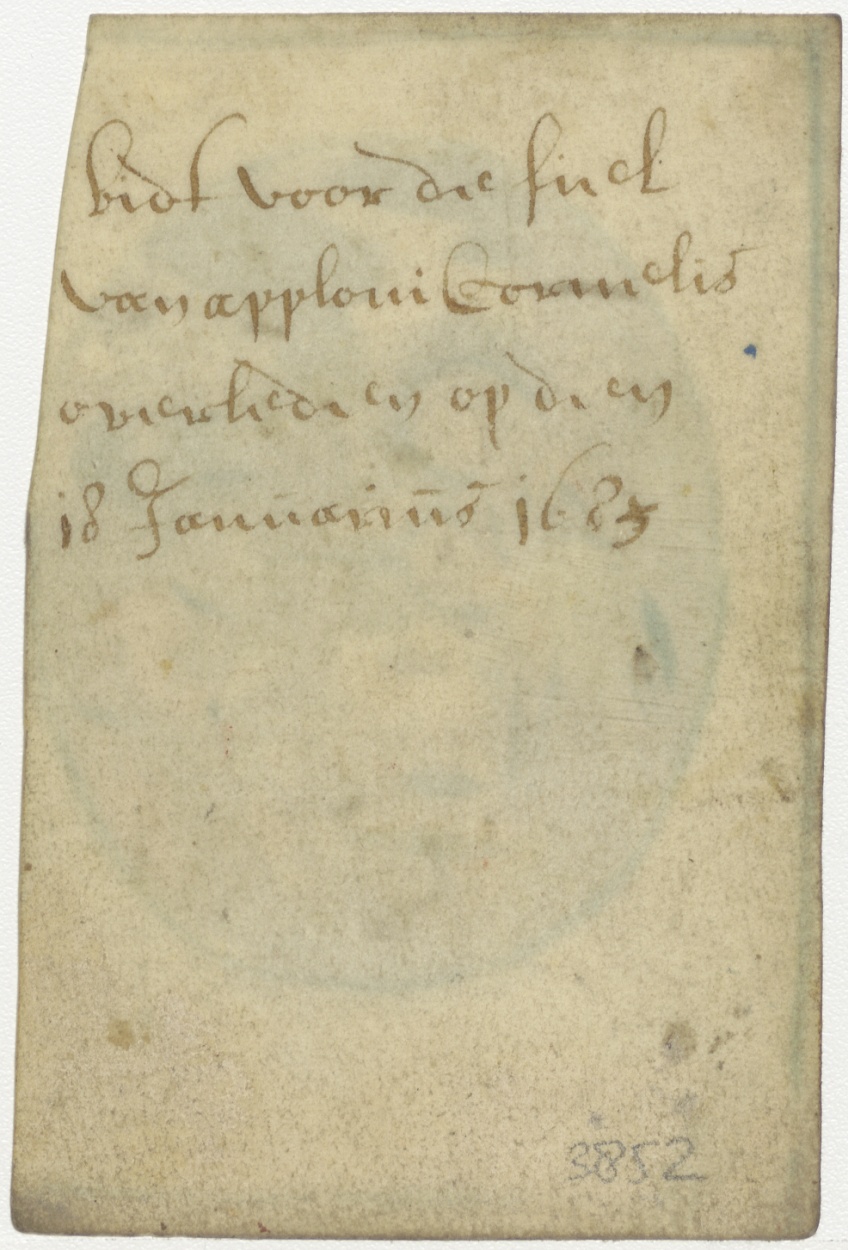 bidt voor die siel
van apploni Cornelis
overledien op dien
18 Januarius 1685
3852